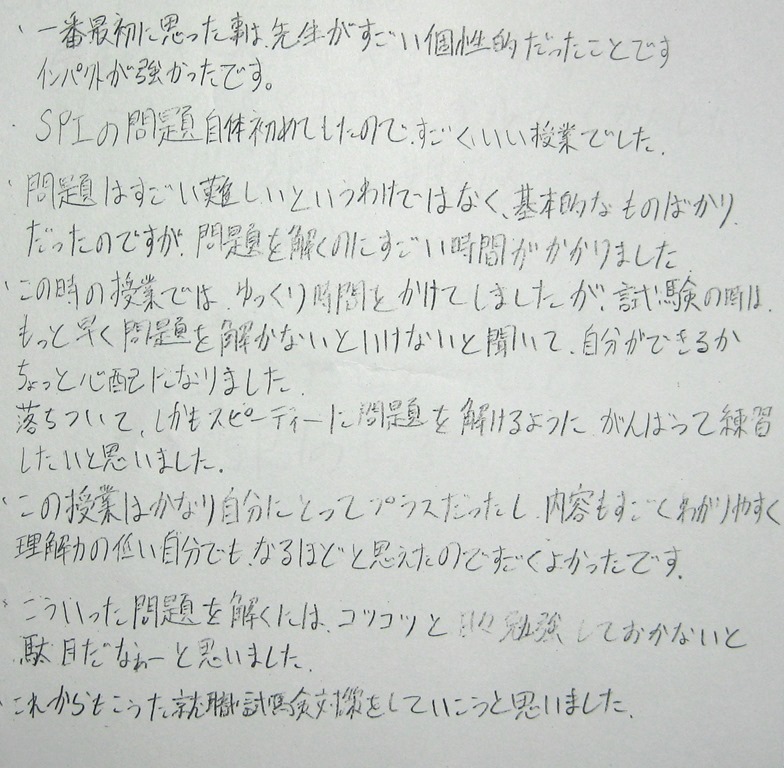 ・一番最初に思った事は、先生がすごい個性的だったことです
インパクトが強かったです。
・SPIの問題自体初めてもたので、すごくいい授業でした。
・問題はすごい難しいというわけではなく、基本的なものばかり
だったのですが、問題を解くのにすごい時間がかかりました
・この時の授業では、ゆっくり時間をかけてしましたが、試験の時は、
もっと早く問題を解かないといけないと聞いて、自分ができるか
ちょっと心配になりました。
落ちついて、しかもスピーディーに問題を解けるように がんばって練習
したいと思いました。
・この授業はかなり自分にとってプラスだったし、内容もすごくわかりやすく
理解力の低い自分でも、なるほどと思えたのですごくよかったです。
・こういった問題を解くには、コツコツと日々勉強しておかないと
駄目だなぁーと思いました。
・これからもこうた就職試験対策をしていこうと思いました。